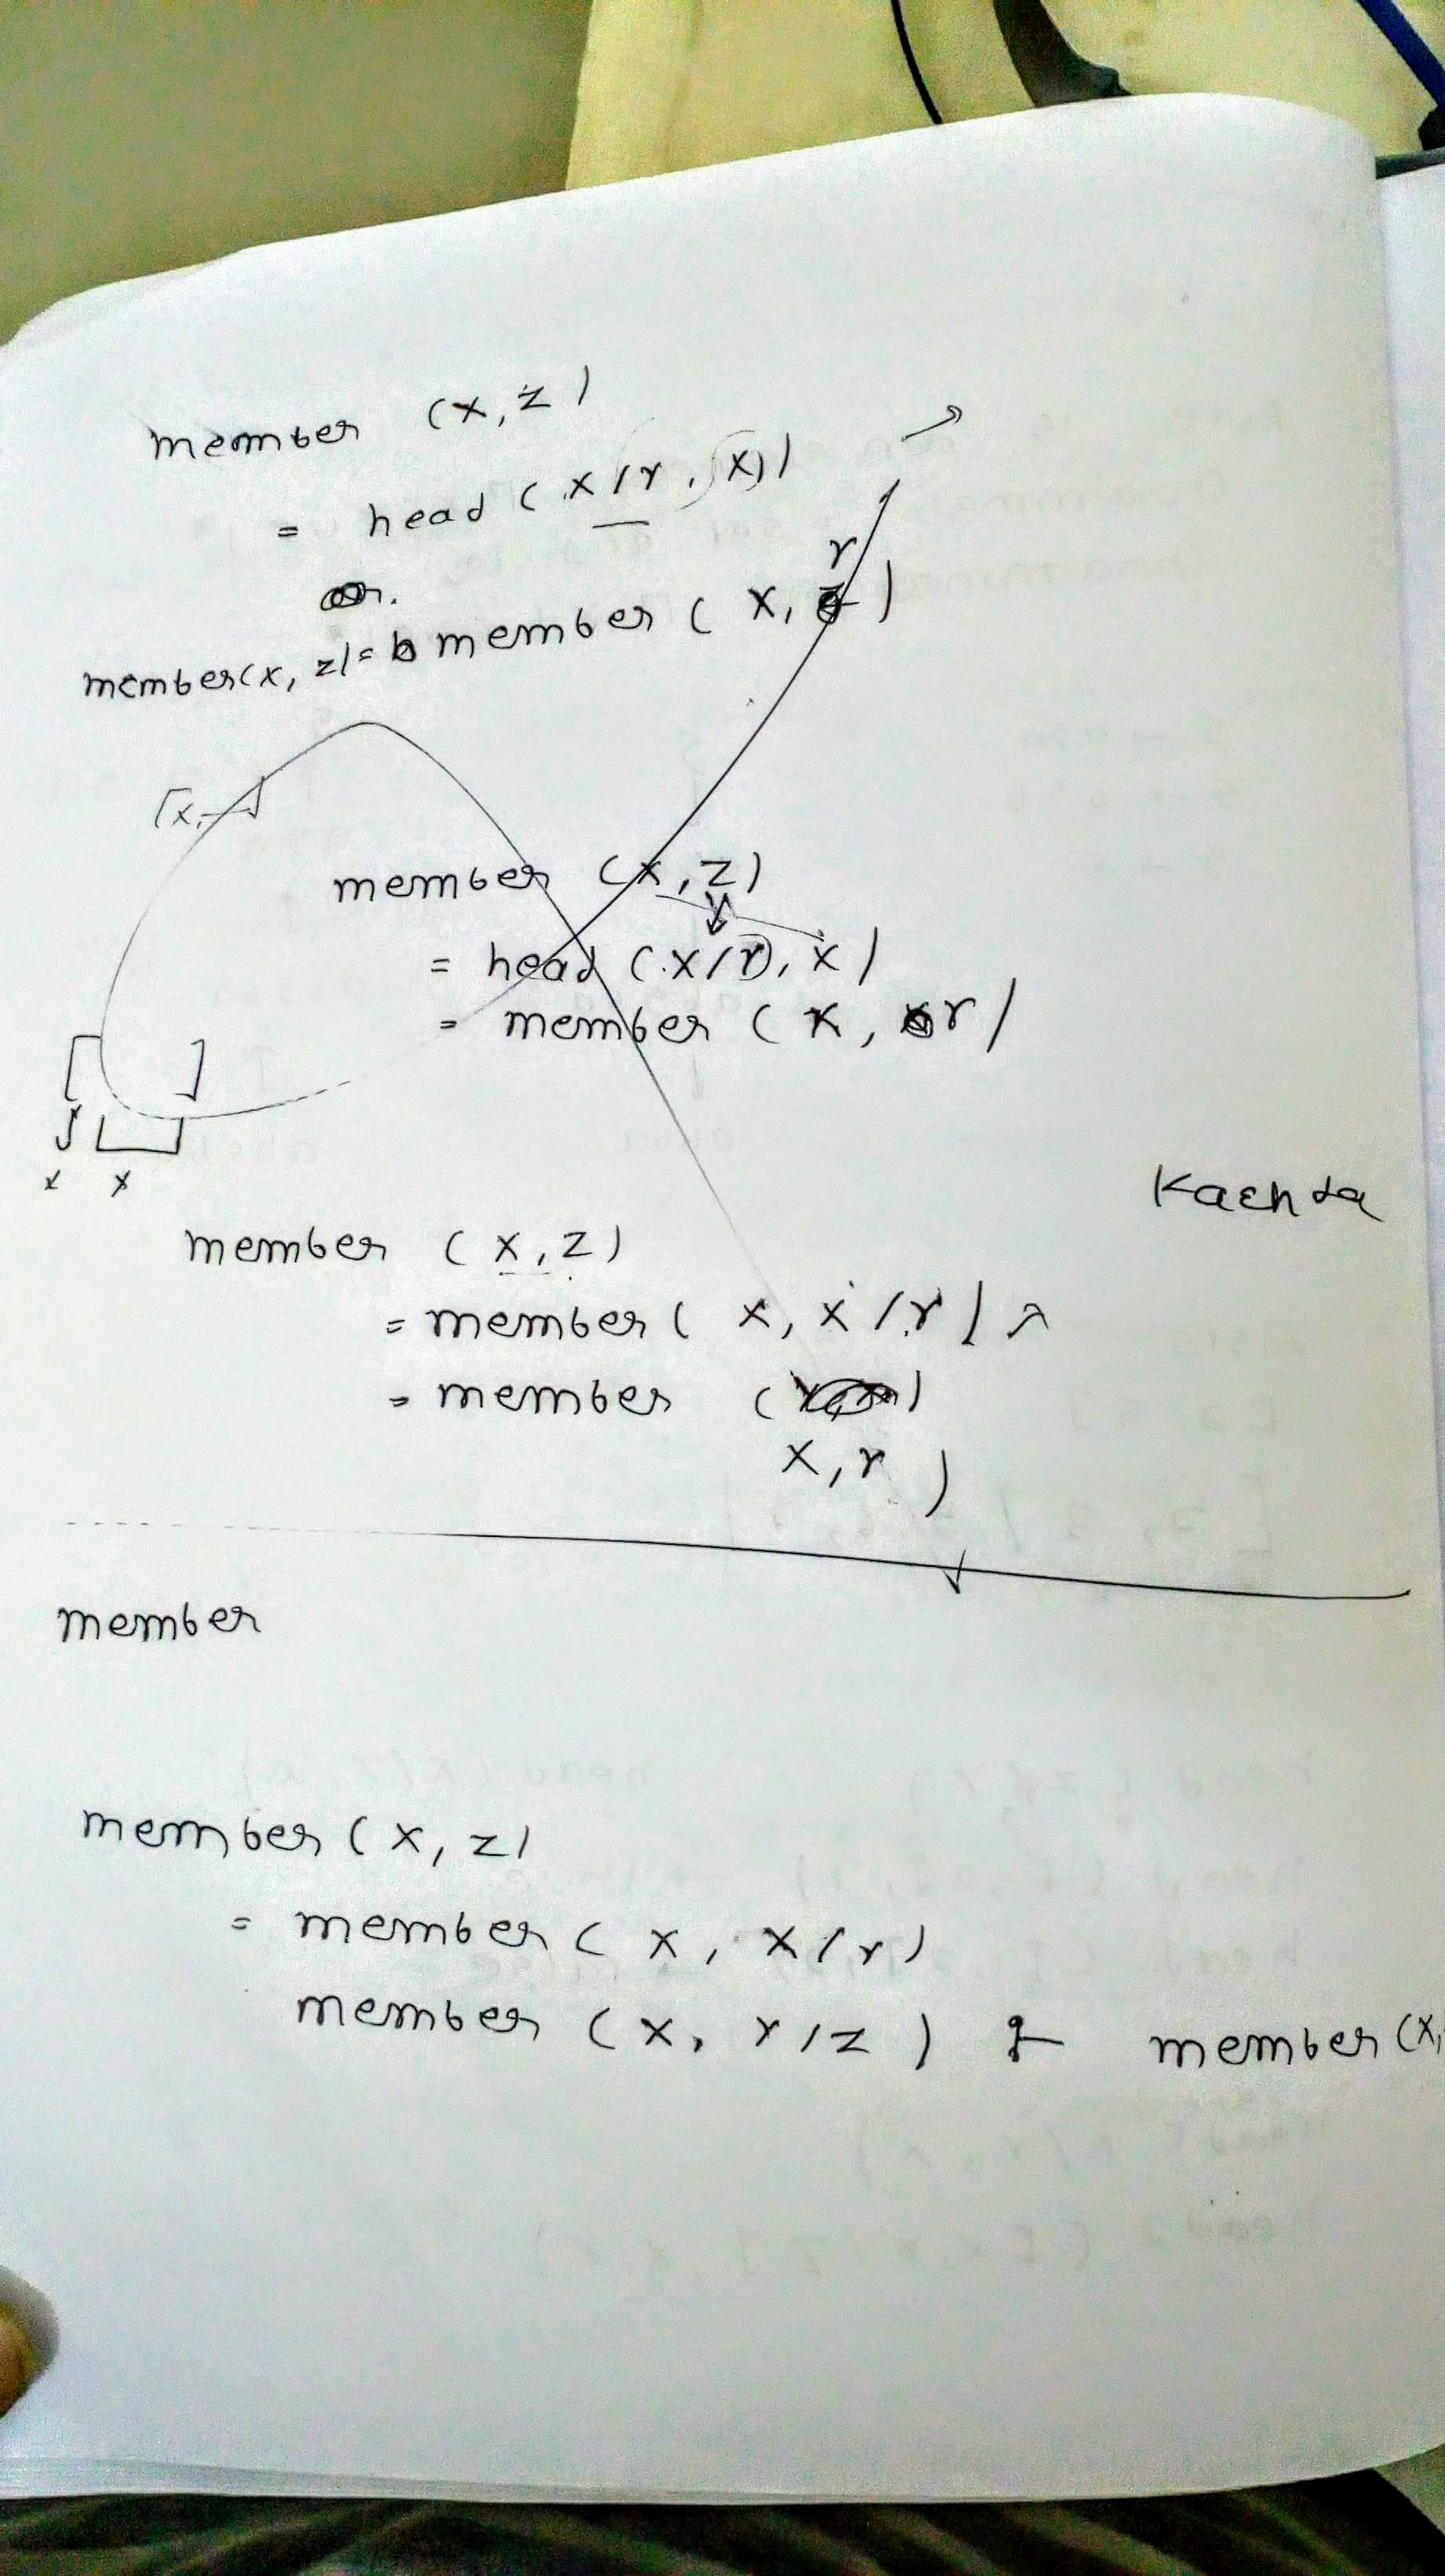 member (x, z)
= head (x/r, x))
or.
member(x, z) = member (x, r)
[x, ]
member (x, z)
= head (x/r, x)
= member (x, r)
[ ]
x x
member (x, z)
= member (x, x/r)
= member (
x, r )
member
member (x, z)
= member (x, x/r)
member (x, r/z) member (x,